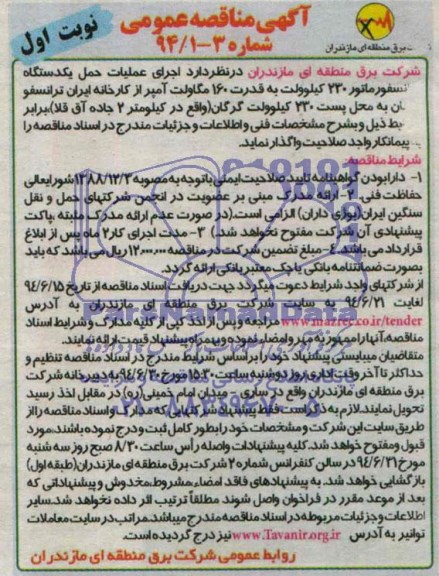 آگهی مناقصه عمومی
نوبت اول
شماره ۳-۹۴/۱
برق منطقه ای مازندران
شرکت برق منطقه ای مازندران درنظردارد اجرای عملیات حمل یکدستگاه
نسفورماتور ۲۳۰ کیلوولت به قدرت ۱۶۰ مگاولت آمپر از کارخانه ایران ترانسفو
ان به محل پست ۲۳۰ کیلوولت گرگان(واقع در کیلومتر ۲ جاده آق قلا)برابر
بط ذیل و بشرح مشخصات فنی و اطلاعات و جزئیات مندرج در اسناد مناقصه را
پیمانکار واجد صلاحیت واگذار نماید.
شرایط مناقصه:
۱- دارا بودن گواهینامه تایید صلاحیت ایمنی باتوجه به مصوبه ۱۳۸۸/۱۲/۳ شورایعالی
حفاظت فنی ۲- ارائه مدرک مبنی بر عضویت در انجمن شرکتهای حمل و نقل
سنگین ایران(بوژی داران) الزامی است.(در صورت عدم ارائه مدرک مثبته ،پاکت
پیشنهادی آن شرکت مفتوح نخواهد شد.) ۳- مدت اجرای کار ۲ ماه پس از ابلاغ
قرارداد می باشد. ۴- مبلغ تضمین شرکت در مناقصه ۱۲۰۰۰۰۰۰ ریال می باشد که باید
بصورت ضمانتنامه بانکی یا چک معتبر بانکی ارائه گردد.
از شرکتهای واجد شرایط دعوت میگردد جهت دریافت اسناد مناقصه از تاریخ ۹۴/۶/۱۵
لغایت ۹۴/۶/۲۱ به سایت شرکت برق منطقه ای مازندران به آدرس
www.mazrec.co.ir/tender مراجعه و پس از اخذ کپی از کلیه مدارک و شرایط اسناد
مناقصه،آنها را ممهور به مهر و امضار نموده و بهمراه پیشنهاد قیمت ارائه نمایند.
متقاضیان میبایستی پیشنهاد خود را بر اساس شرایط مندرج در اسناد مناقصه تنظیم و
حداکثر تا آخر وقت اداری روز دوشنبه ساعت ۱۵:۳۰ مورخ ۹۴/۶/۳۰ به دبیرخانه شرکت
برق منطقه ای مازندران واقع در ساری - میدان امام خمینی(ره) در مقابل اخذ رسید
تحویل نمایند.لازم به ذکر است فقط پیشنهاد شرکتهایی که مدارک و اسناد مناقصه را از
طریق سایت این شرکت و مشخصات خود را بطور کامل ثبت و درج نموده باشند،مورد
قبول و مفتوح خواهد شد. کلیه پیشنهادات واصله رأس ساعت ۸/۳۰ صبح روز سه شنبه
مورخ ۹۴/۶/۳۱ در سالن کنفرانس شماره ۲ شرکت برق منطقه ای مازندران(طبقه اول)
بازگشایی خواهد شد. به پیشنهادهای فاقد امضاء،مشروط،مخدوش و پیشنهاداتی که
بعد از موعد مقرر در فراخوان واصل شوند مطلقاً ترتیب اثر داده نخواهد شد.سایر
اطلاعات و جزئیات مربوطه در اسناد مناقصه مندرج میباشد.مراتب در سایت معاملات
توانیر به آدرس www.Tavanir.org.ir نیز درج گردیده است.
روابط عمومی شرکت برق منطقه ای مازندران
ParsNamadData